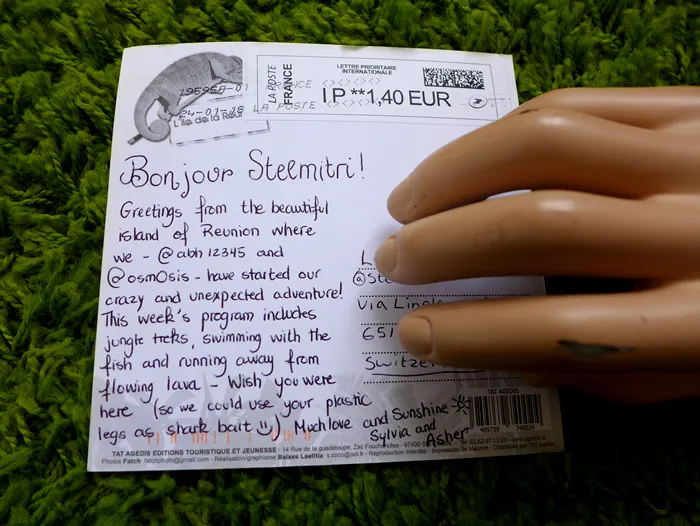 LETTRE PRIORITAIRE
INTERNATIONALE
LA POSTE
FRANCE
IP **1,40 EUR
195958-01
24-01-18
LA POSTE
L'île de la Réun
Bonjour Steemitri!
Greetings from the beautiful
island of Reunion where
we - @abh12345 and
@osm0sis - have started our
crazy and unexpected adventure!
This week's program includes
jungle treks, swimming with the
fish and running away from
flowing lava - Wish you were
here (so we could use your plastic
legs as shark bait). Much love and Sunshine
Sylvia and
Asher
L
@Ste
Via Lin
651
Switze
TAT AGEDIS
TAT AGEDIS EDITIONS TOURISTIQUE ET JEUNESSE - 14 Rue de la guadeloupe, Zac Foucherolles - 97490
Photos Fatch fatchphoto@gmail.com - Réalisation/graphisme Baixes Laetitia
Reproduction interdite